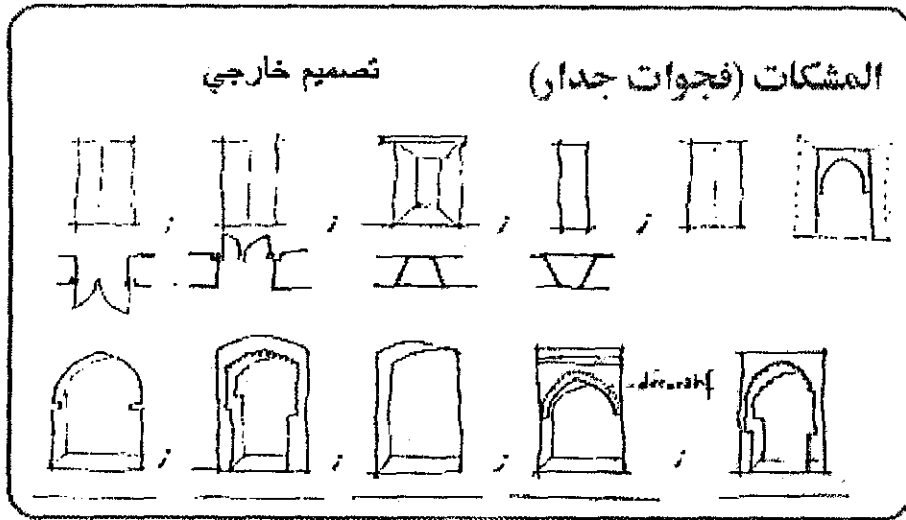 المشكات (فجوات جدار) تصميم خارجي
; ; ; ;
décoratif
; ; ; ;